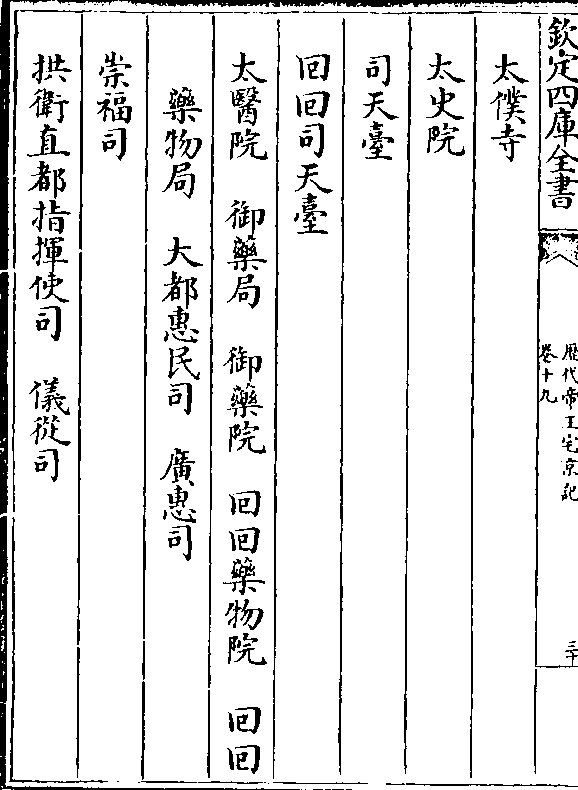 欽定四庫全書
歴代帝王宅京記
卷十九
三十
太僕寺
太史院
司天臺
回回司天臺
太醫院　御藥局　御藥院　回回藥物院　回回
藥物局　大都惠民司　廣惠司
崇福司
拱衛直都指揮使司　儀從司